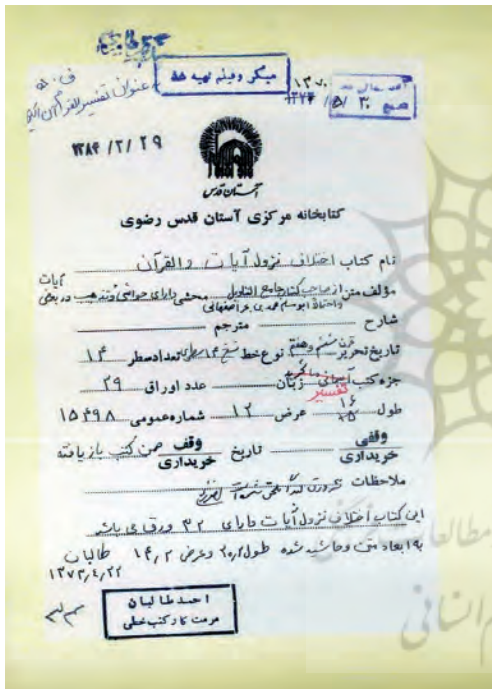 میکروفیلم تهیه شد
عنوان تفسیر القرآن
۱۳۸۴/۲/۲۹
آستان قدس
کتابخانه مرکزی آستان قدس رضوی
نام کتاب اختلاف نزول آیات والقرآن
مؤلف متن از صاحب کتاب جامع التاویل محشی دارای حواشی و تذهیب در بعضی آیات
واحتمالا ابومسلم محمد بن بحر اصفهانی
شارح مترجم
تاریخ تحریر قرن ششم و هفتم نوع خط نسخ ۱۴ سطری تعداد سطر ۱۴
جزء کتب زبان عدد اوراق ۲۹
تفسیر
طول ۱۶ عرض ۱۲ شماره عمومی ۱۵۴۹۸
وقفی خریداری تاریخ وقف خریداری ضمن کتب بازیافته
ملاحظات
این کتاب اختلاف نزول آیات دارای ۳۲ ورق می باشد
به ابعاد متن وحاشیه شده طول ۲۰٫۲ وعرض ۱۴٫۲ طالبان
۱۳۷۳٫۴٫۲۲
احمد طالبان
مرمت کار کتب خطی